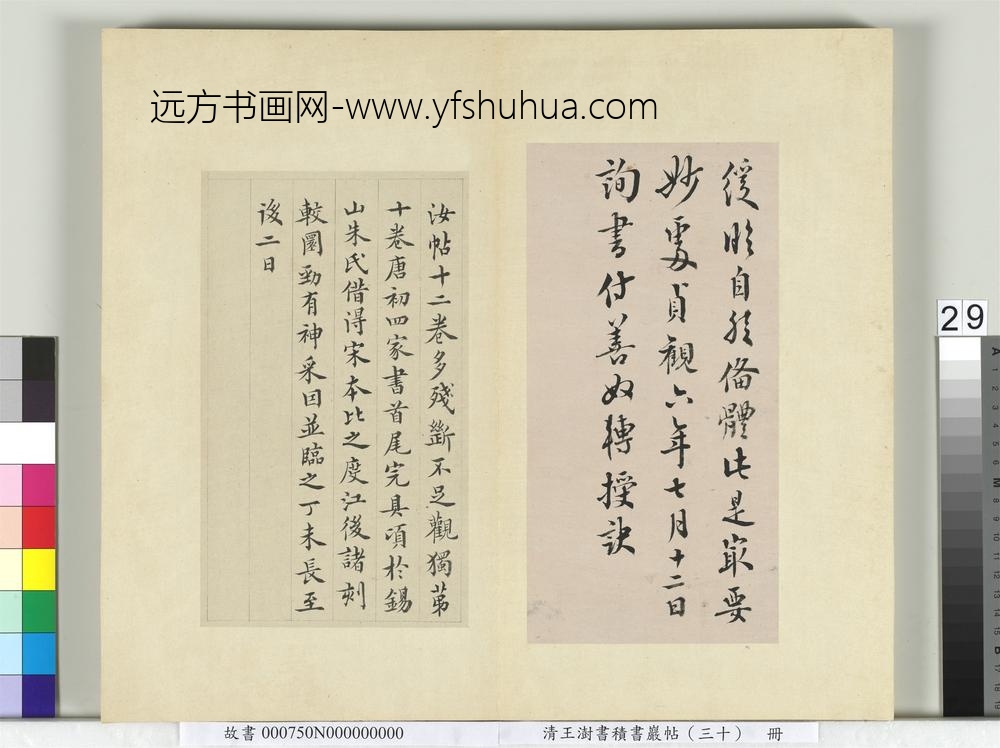 远方书画网-www.yfshuhua.com
緩臨自然備體此是最要
妙處貞觀六年七月十二日
詢書付善奴轉授訣
汝帖十二卷多殘斷不足觀獨第
十卷唐初四家書首尾完具項於錫
山朱氏借得宋本比之度江後諸刻
較圜勁有神采因並臨之丁未長至
後二日
29
故書 000750N000000000
清王澍書積書巖帖(三十) 冊